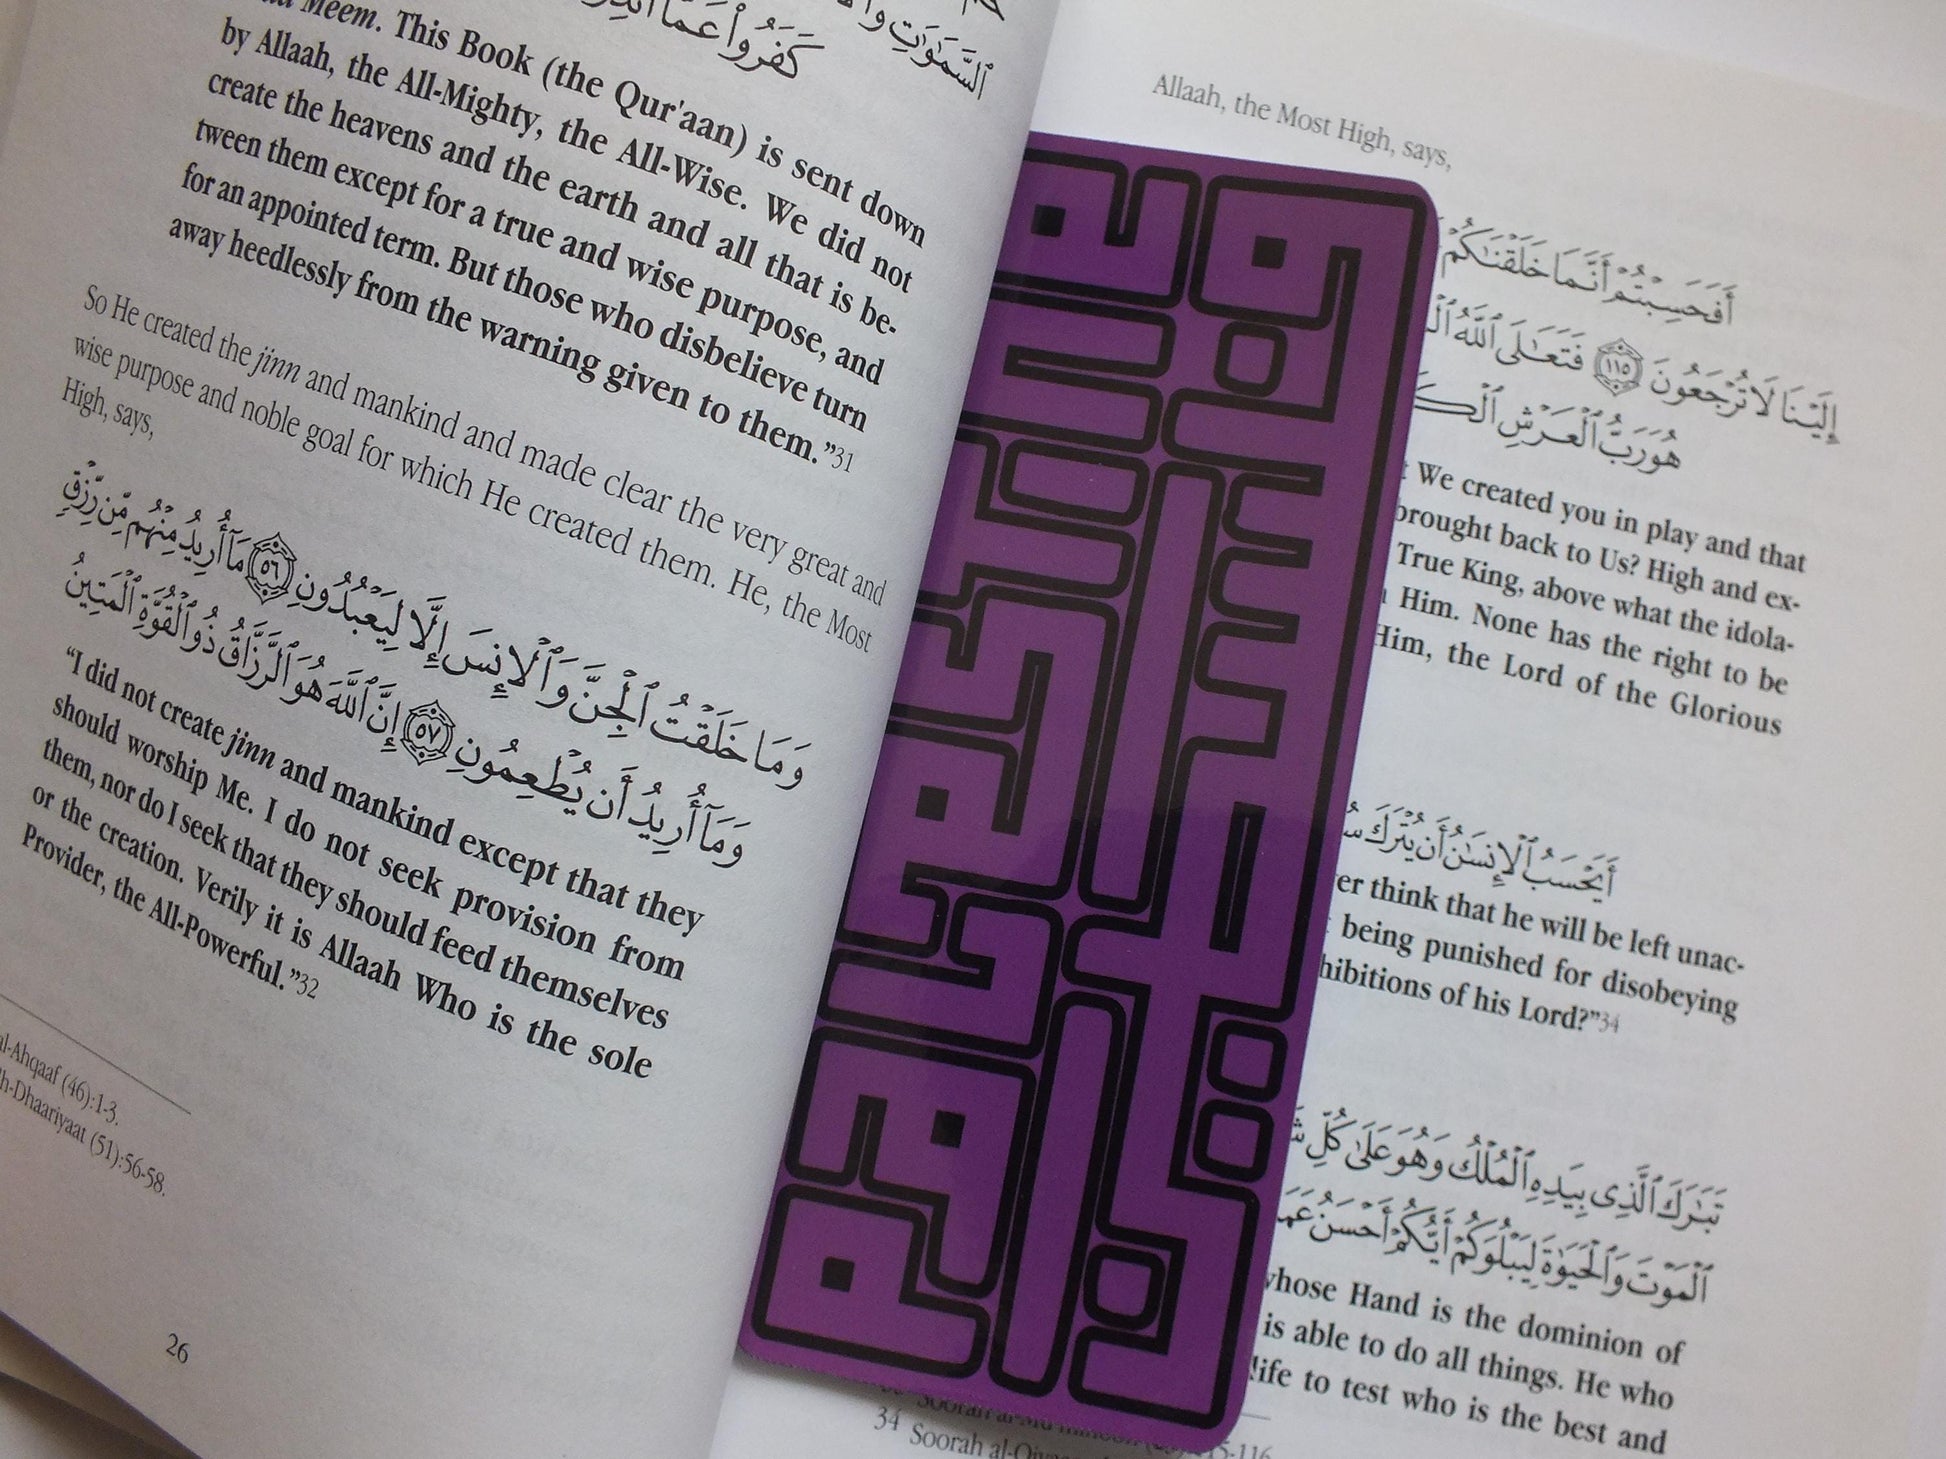 Meem. This Book (the Qur'aan) is sent down
by Allaah, the All-Mighty, the All-Wise. We did not
create the heavens and the earth and all that is be-
tween them except for a true and wise purpose, and
for an appointed term. But those who disbelieve turn
away heedlessly from the warning given to them.”31
So He created the jinn and mankind and made clear the very great and
wise purpose and noble goal for which He created them. He, the Most
High, says,
وَمَا خَلَقْتُ ٱلْجِنَّ وَٱلْإِنسَ إِلَّا لِيَعْبُدُونِ ٥٦ مَآ أُرِيدُ مِنْهُم مِّن رِّزْقٍ
وَمَآ أُرِيدُ أَن يُطْعِمُونِ ٥٧ إِنَّ ٱللَّهَ هُوَ ٱلرَّزَّاقُ ذُو ٱلْقُوَّةِ ٱلْمَتِينُ
“I did not create jinn and mankind except that they
should worship Me. I do not seek provision from
them, nor do I seek that they should feed themselves
or the creation. Verily it is Allaah Who is the sole
Provider, the All-Powerful.”32
al-Ahqaaf (46):1-3.
(51):56-58.
26
Allaah, the Most High, says,
أَفَحَسِبْتُمْ أَنَّمَا خَلَقْنَٰكُمْ
إِلَيْنَا لَا تُرْجَعُونَ ١١٥ فَتَعَٰلَى ٱللَّهُ
هُوَ رَبُّ ٱلْعَرْشِ
We created you in play and that
brought back to Us? High and ex-
True King, above what the idola-
Him. None has the right to be
Him, the Lord of the Glorious
أَيَحْسَبُ ٱلْإِنسَٰنُ أَن يُتْرَكَ
think that he will be left unac-
being punished for disobeying
of his Lord?”34
تَبَٰرَكَ ٱلَّذِى بِيَدِهِ ٱلْمُلْكُ وَهُوَ عَلَىٰ كُلِّ
ٱلْمَوْتَ وَٱلْحَيَوٰةَ لِيَبْلُوَكُمْ أَيُّكُمْ أَحْسَنُ
whose Hand is the dominion of
is able to do all things. He who
life to test who is the best and
34 Soorah